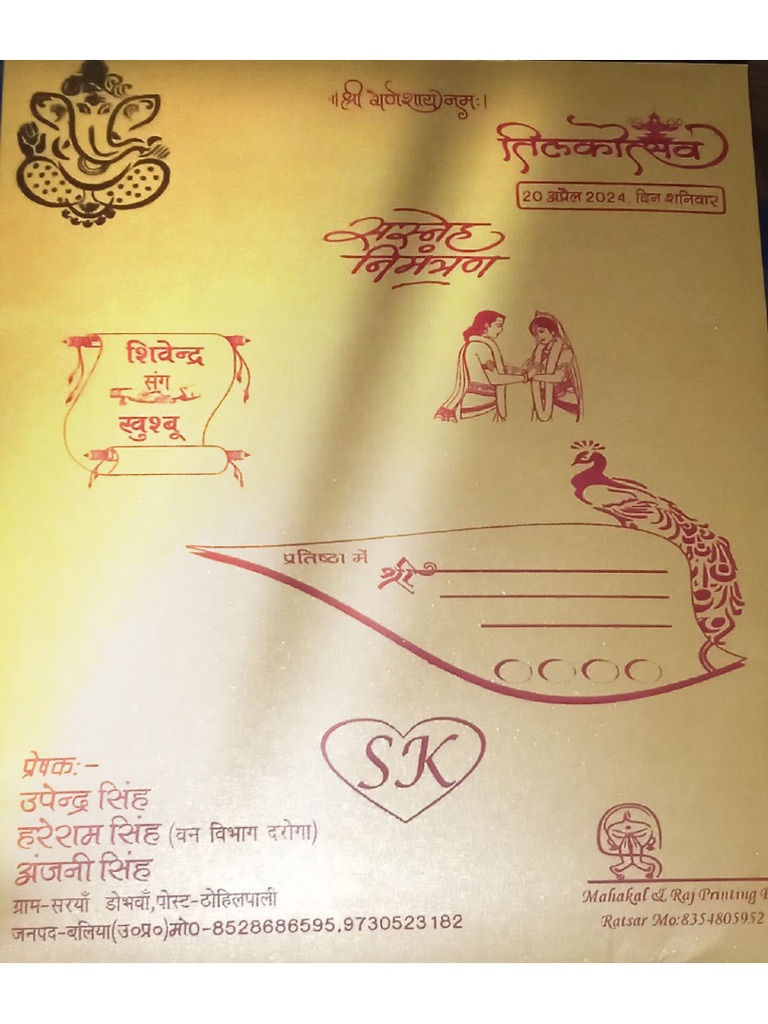 ॥श्री गणेशाय नमः।
तिलकोत्सव
20 अप्रैल 2024, दिन शनिवार
सस्नेह
निमंत्रण
शिवेन्द्र
संग
खुश्बू
प्रतिष्ठा में
श्री
SK
प्रेषक:-
उपेन्द्र सिंह
हरेराम सिंह (वन विभाग दरोगा)
अंजनी सिंह
ग्राम-सरयाँ डोभवाँ,पोस्ट-ठोहिलपाली
जनपद-बलिया(उ०प्र०)मो0-8528686595,9730523182
Mahakal & Raj Printing
Ratsar Mo:8354805952